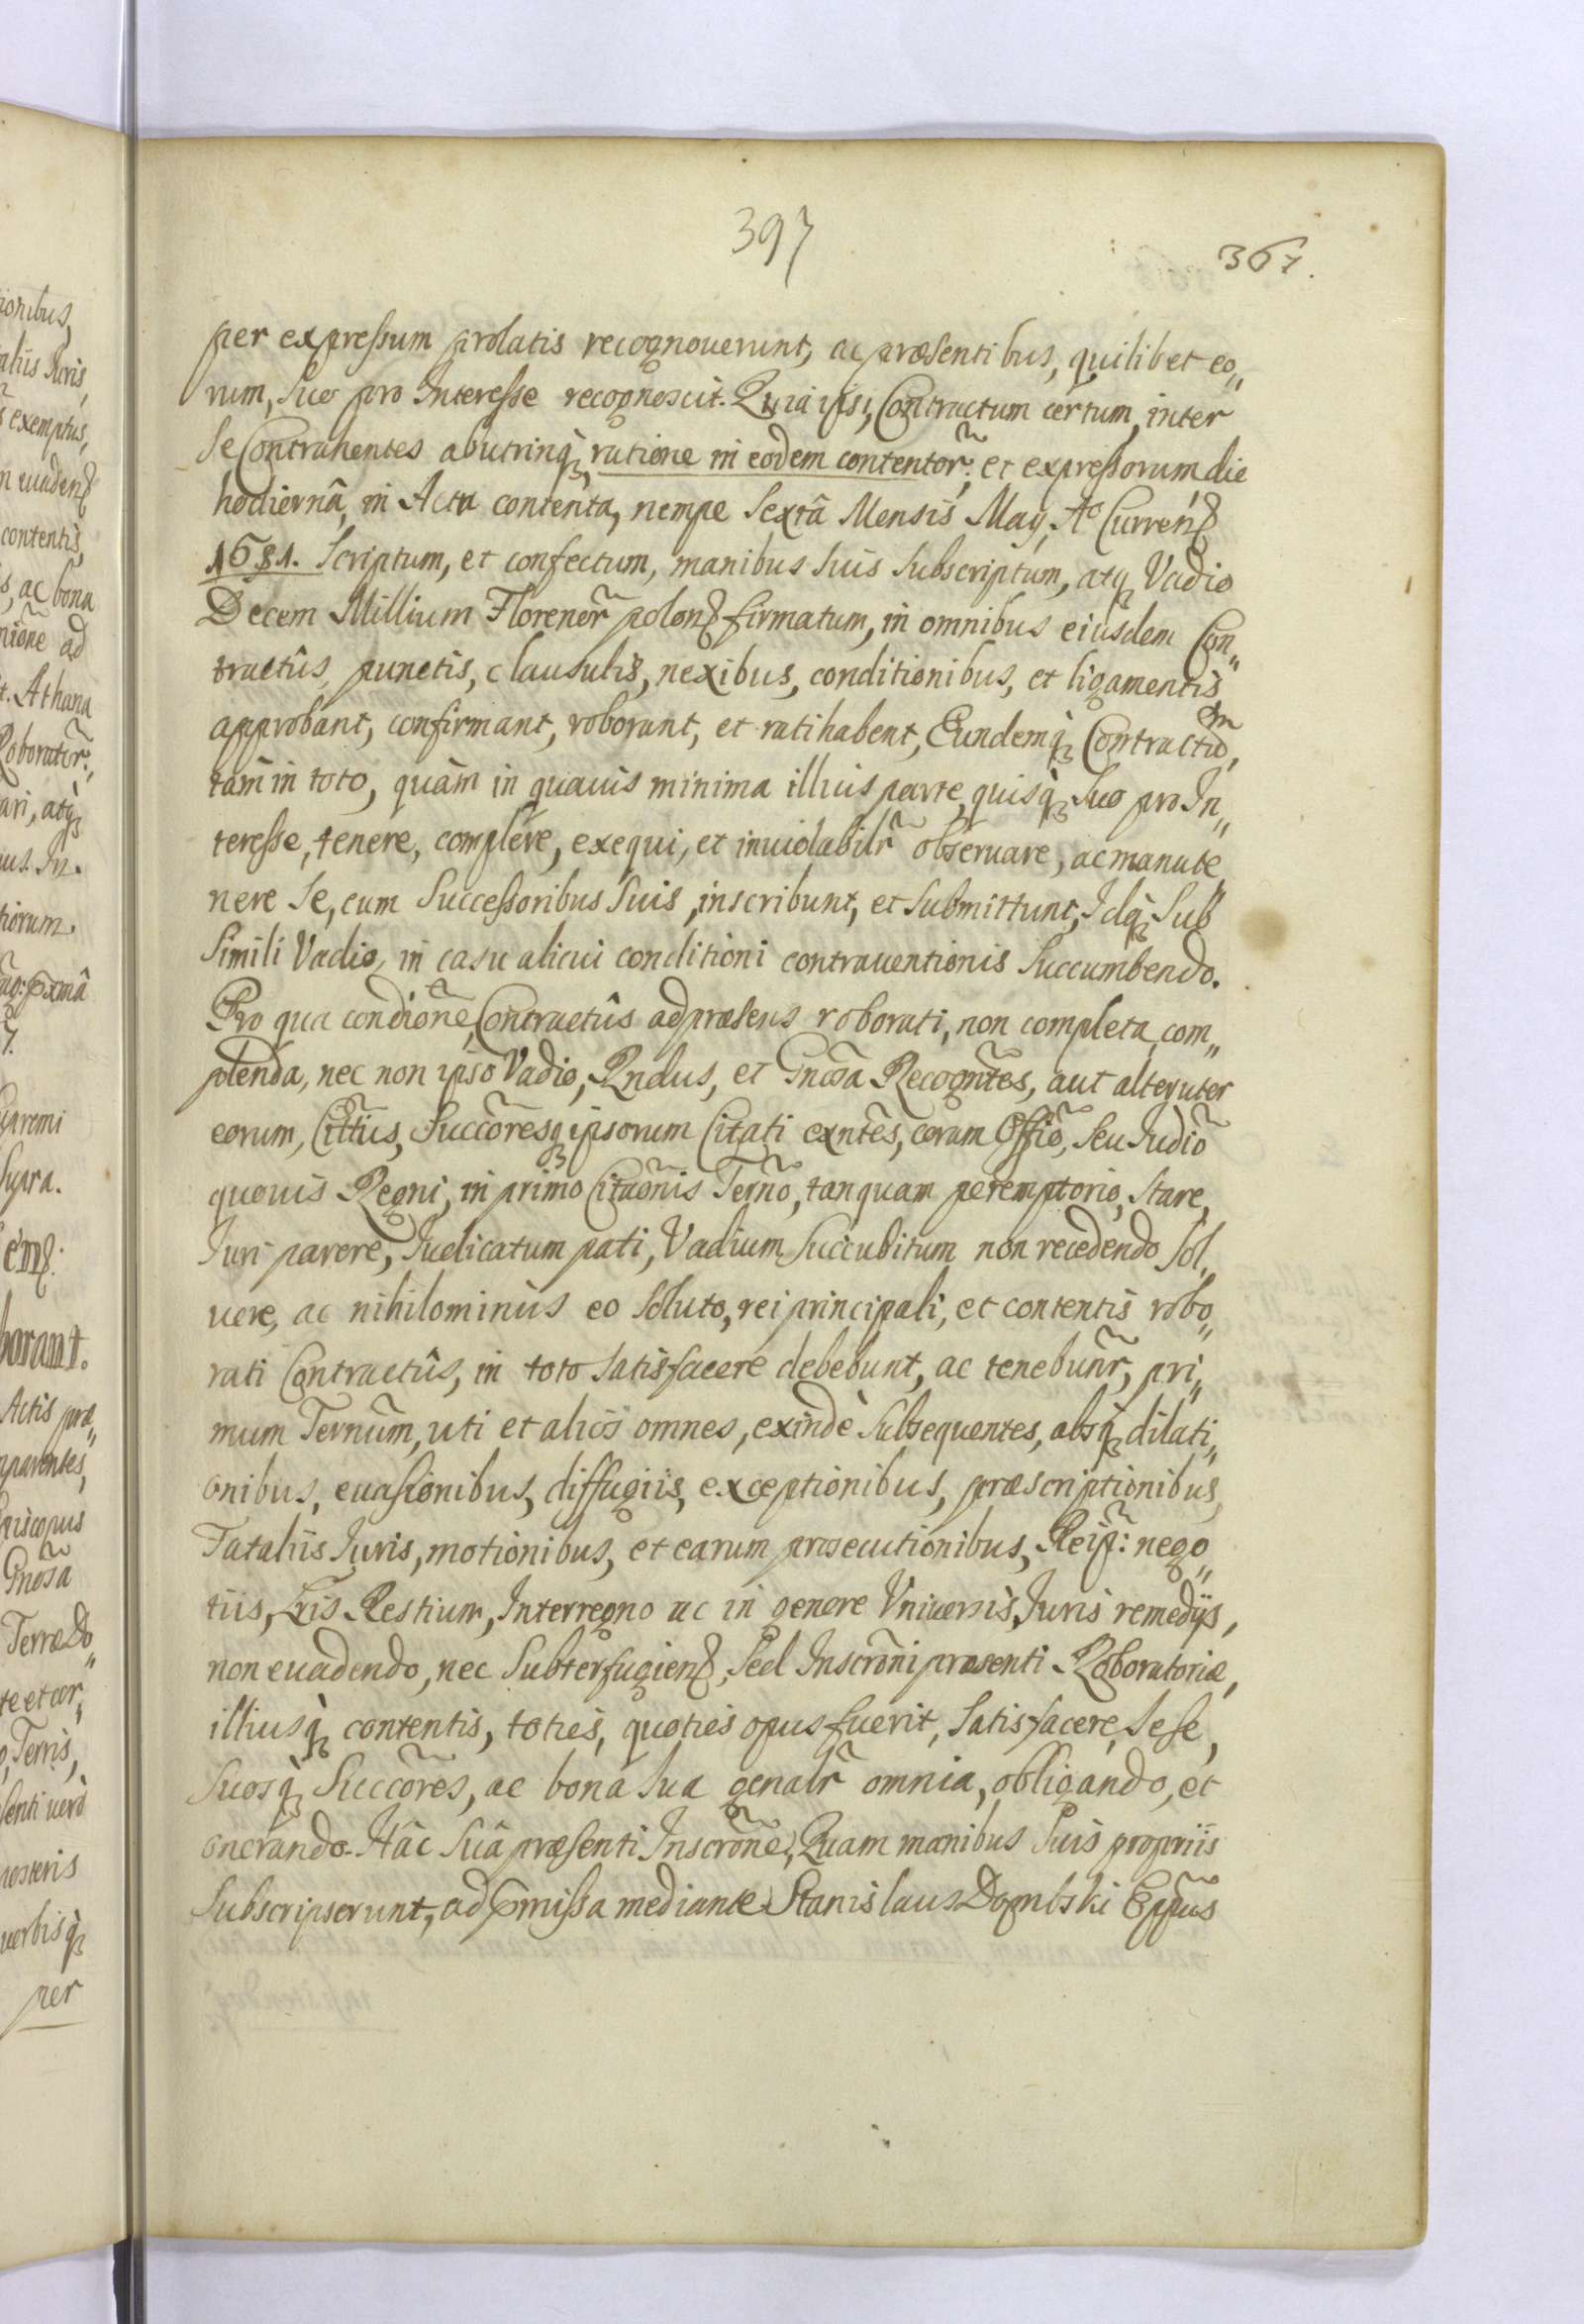 397
367.
per expressum prolatis recognouerunt, ac præsentibus, quilibet eo„
rum, suo pro Interesse recognoscit. Quia ipsi, Contractum certum, inter
se Contrahentes abutrinq̀, ratione in eodem contentor̃: et expressorum die
hodiernâ, in Acta contenta, nempe sextâ Mensis May, Aº Curren̄
1681. scriptum, et confectum, manibus suis subscriptum, atq Vadio
Decem Millium Florenor̃ polon̄ firmatum, in omnibus eiusdem Con„
tractûs, punctis, clausulis, nexibus, conditionibus, et ligamentis
approbant, confirmant, roborant, et ratihabent, Eundemq̀ Contractũ,
tàm in toto, quàm in quauis minima illius parte, quisq̀ suo pro In„
teresse, tenere, complere, exequi, et inuiolabilr̃ obseruare, ac manute„
nere se, cum Successoribus suis, inscribunt, et submittunt, Idq̀ sub
simili Vadio, in casu alicui conditioni contrauentionis succumbendo.
Pro qua condiõne, Contractûs ad præsens roborati, non completa, com„
plenda, nec non ipso Vadio, Rndus, et Gnosa Recogñtes, aut alteruter
eorum, Cittius, Succõresq ipsorum Citati exñtes, coram Offiõ, seu Iudiõ
quouis Regni, in primo Citaõnis Terño, tanquam peremptorio, stare,
Iuri parere, Iudicatum pati, Vadium succubitum non recedendo sol„
uere, ac nihilominùs eo soluto, rei principali, et contentis robo„
rati Contractûs, in toto satisfacere debebunt, ac tenebunr̃, pri„
mum Terñum, uti et alios omnes, exindè subsequentes, absq̀ dilati„
onibus, euasionibus, diffugiis, exceptionibus, præscriptionibus,
Fataliis Iuris, motionibus, et earum prosecutionibus, Reip̃: nego„
tiis, Lris Restium, Interregno ac in genere Vniuersis, Iuris remedijs,
non euadendo, nec subterfugien̄, sed Inscrõni præsenti Roboratoriæ,
illiusq̀ contentis, toties, quoties opus fuerit, satisfacere, sese,
suosq̀ Succõres, ac bona sua genalr̃ omnia, obligando, et
onerando. Hâc suâ præsenti Inscrõne, Quam manibus suis propriis
subscripserunt, ad p̃missa mediante. Stanislaus Dombski Epp̃us